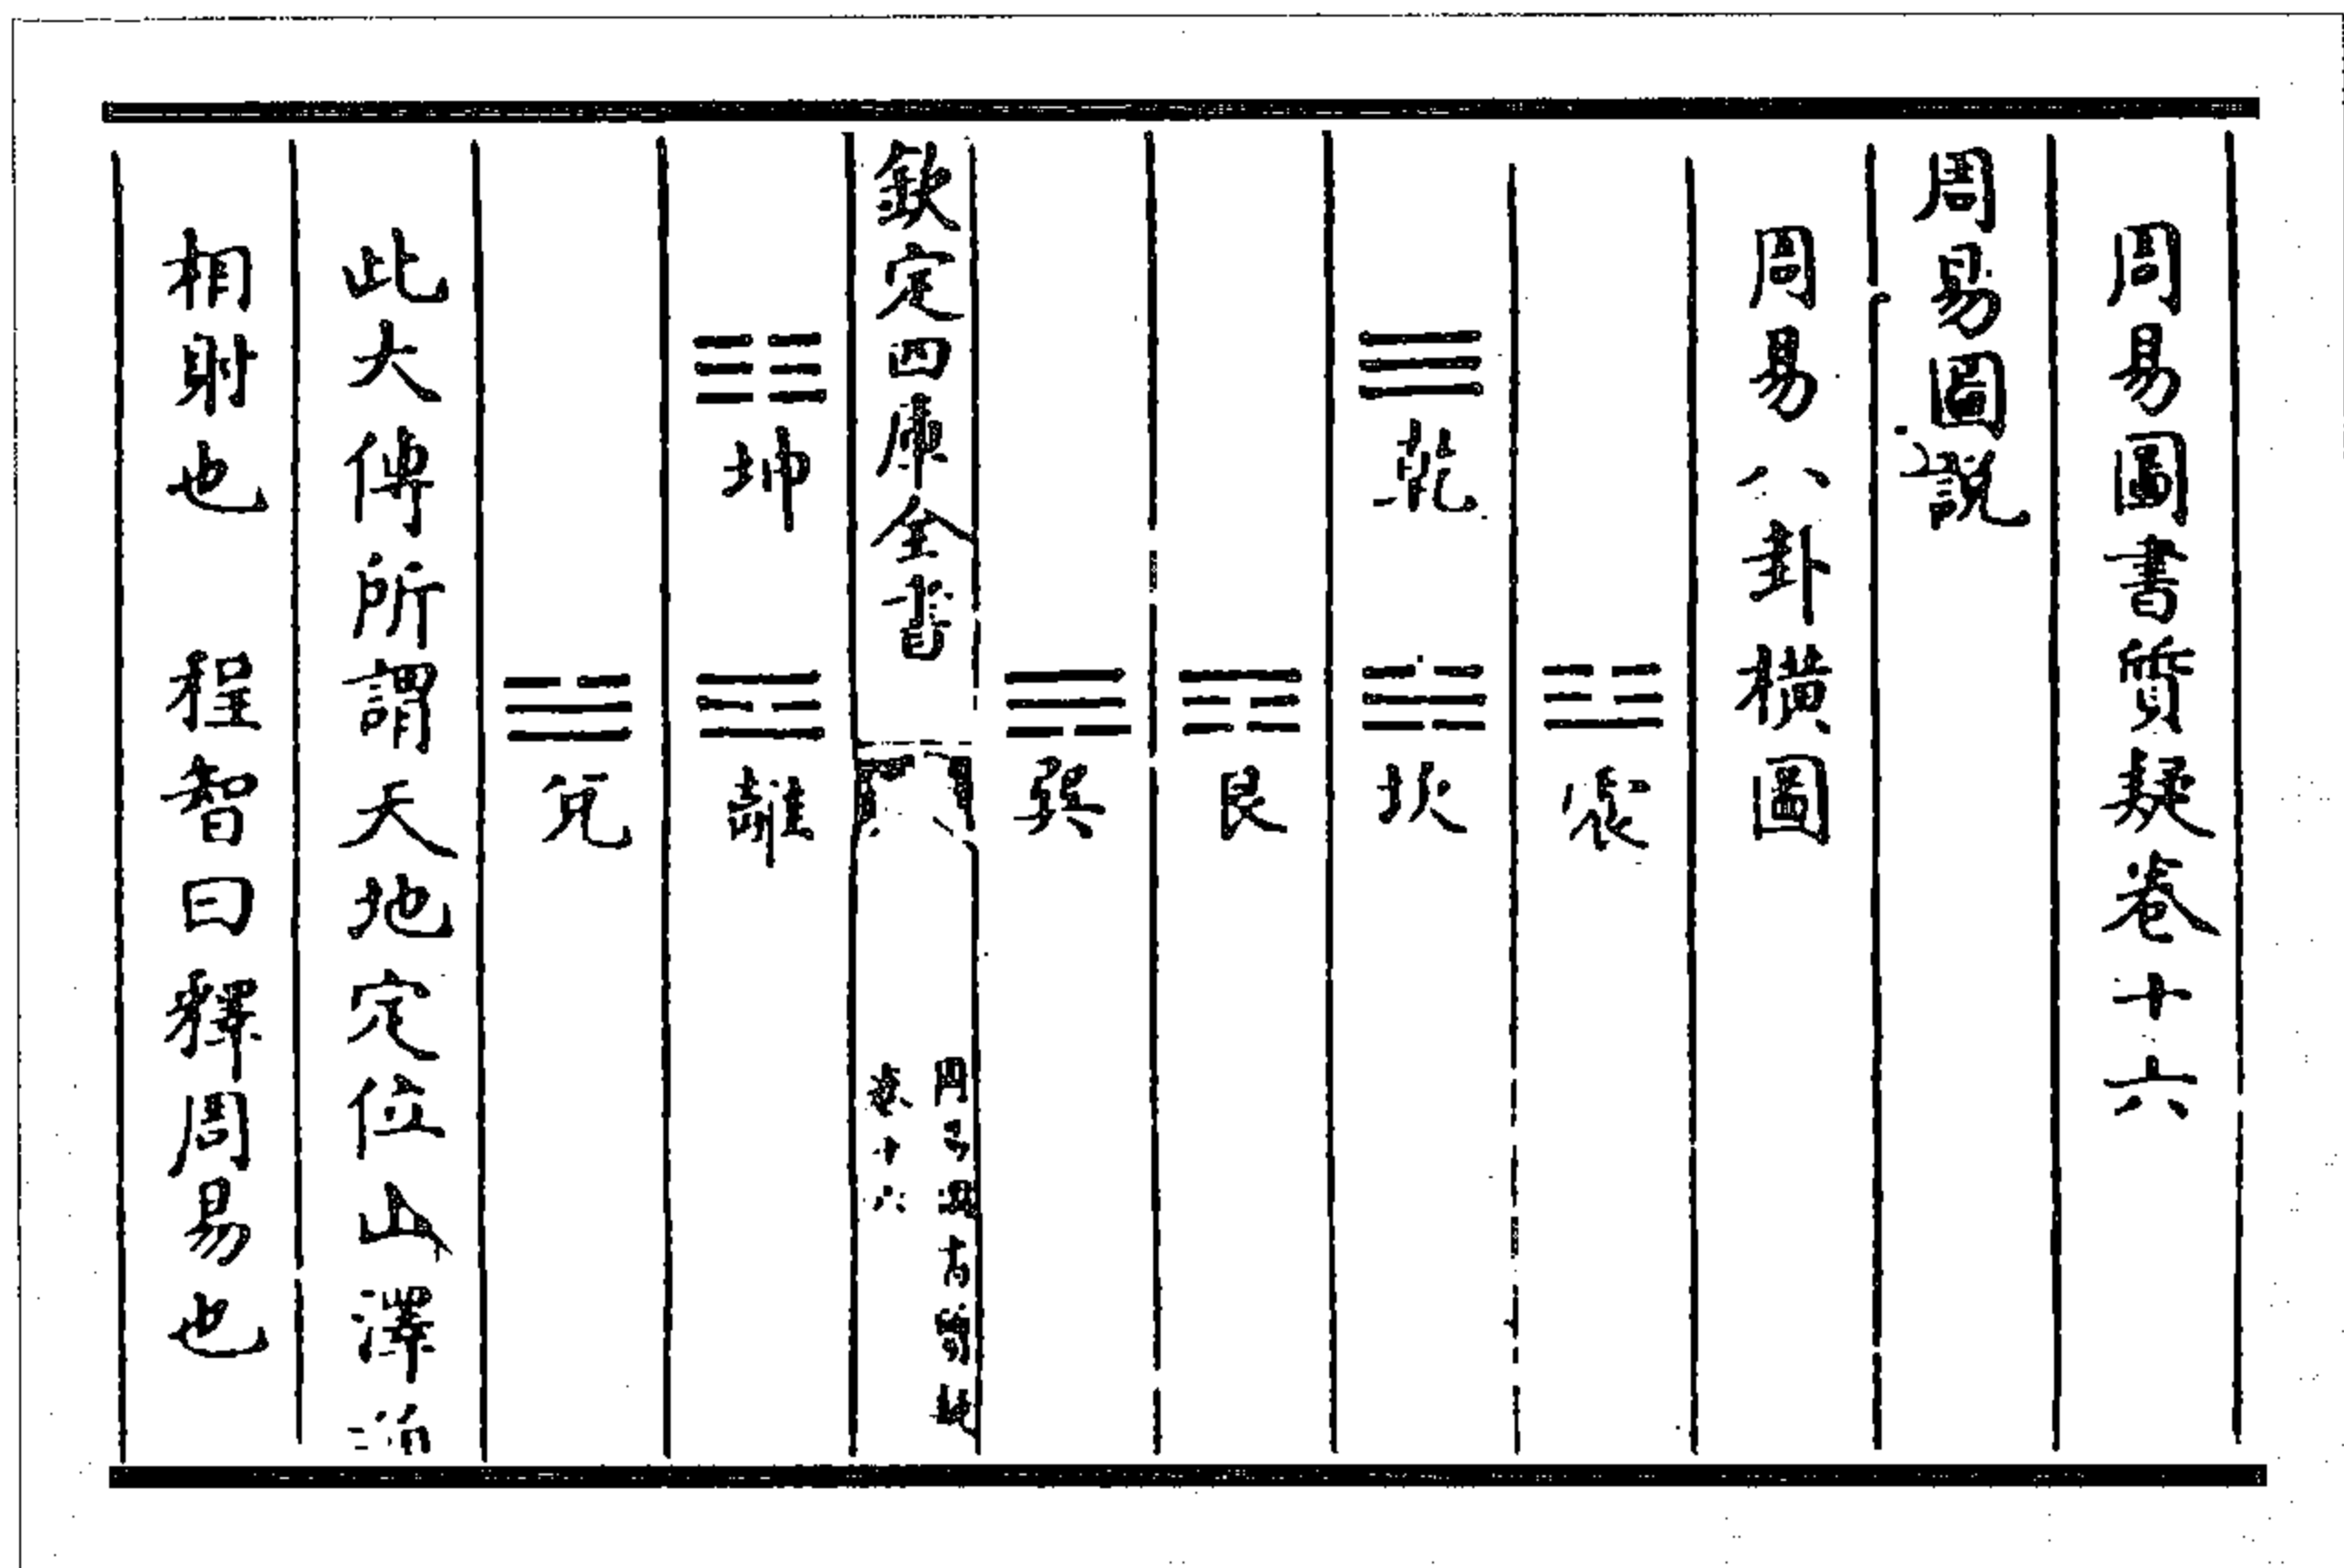 周易圖書質疑卷十六
周易圖說
周易八卦橫圖
☳震
☰乾 ☵坎
☶艮
☴巽
欽定四庫全書
卷十六
☷坤 ☲離
☱兌
此大傳所謂天地定位山澤
相射也 程智曰釋周易也